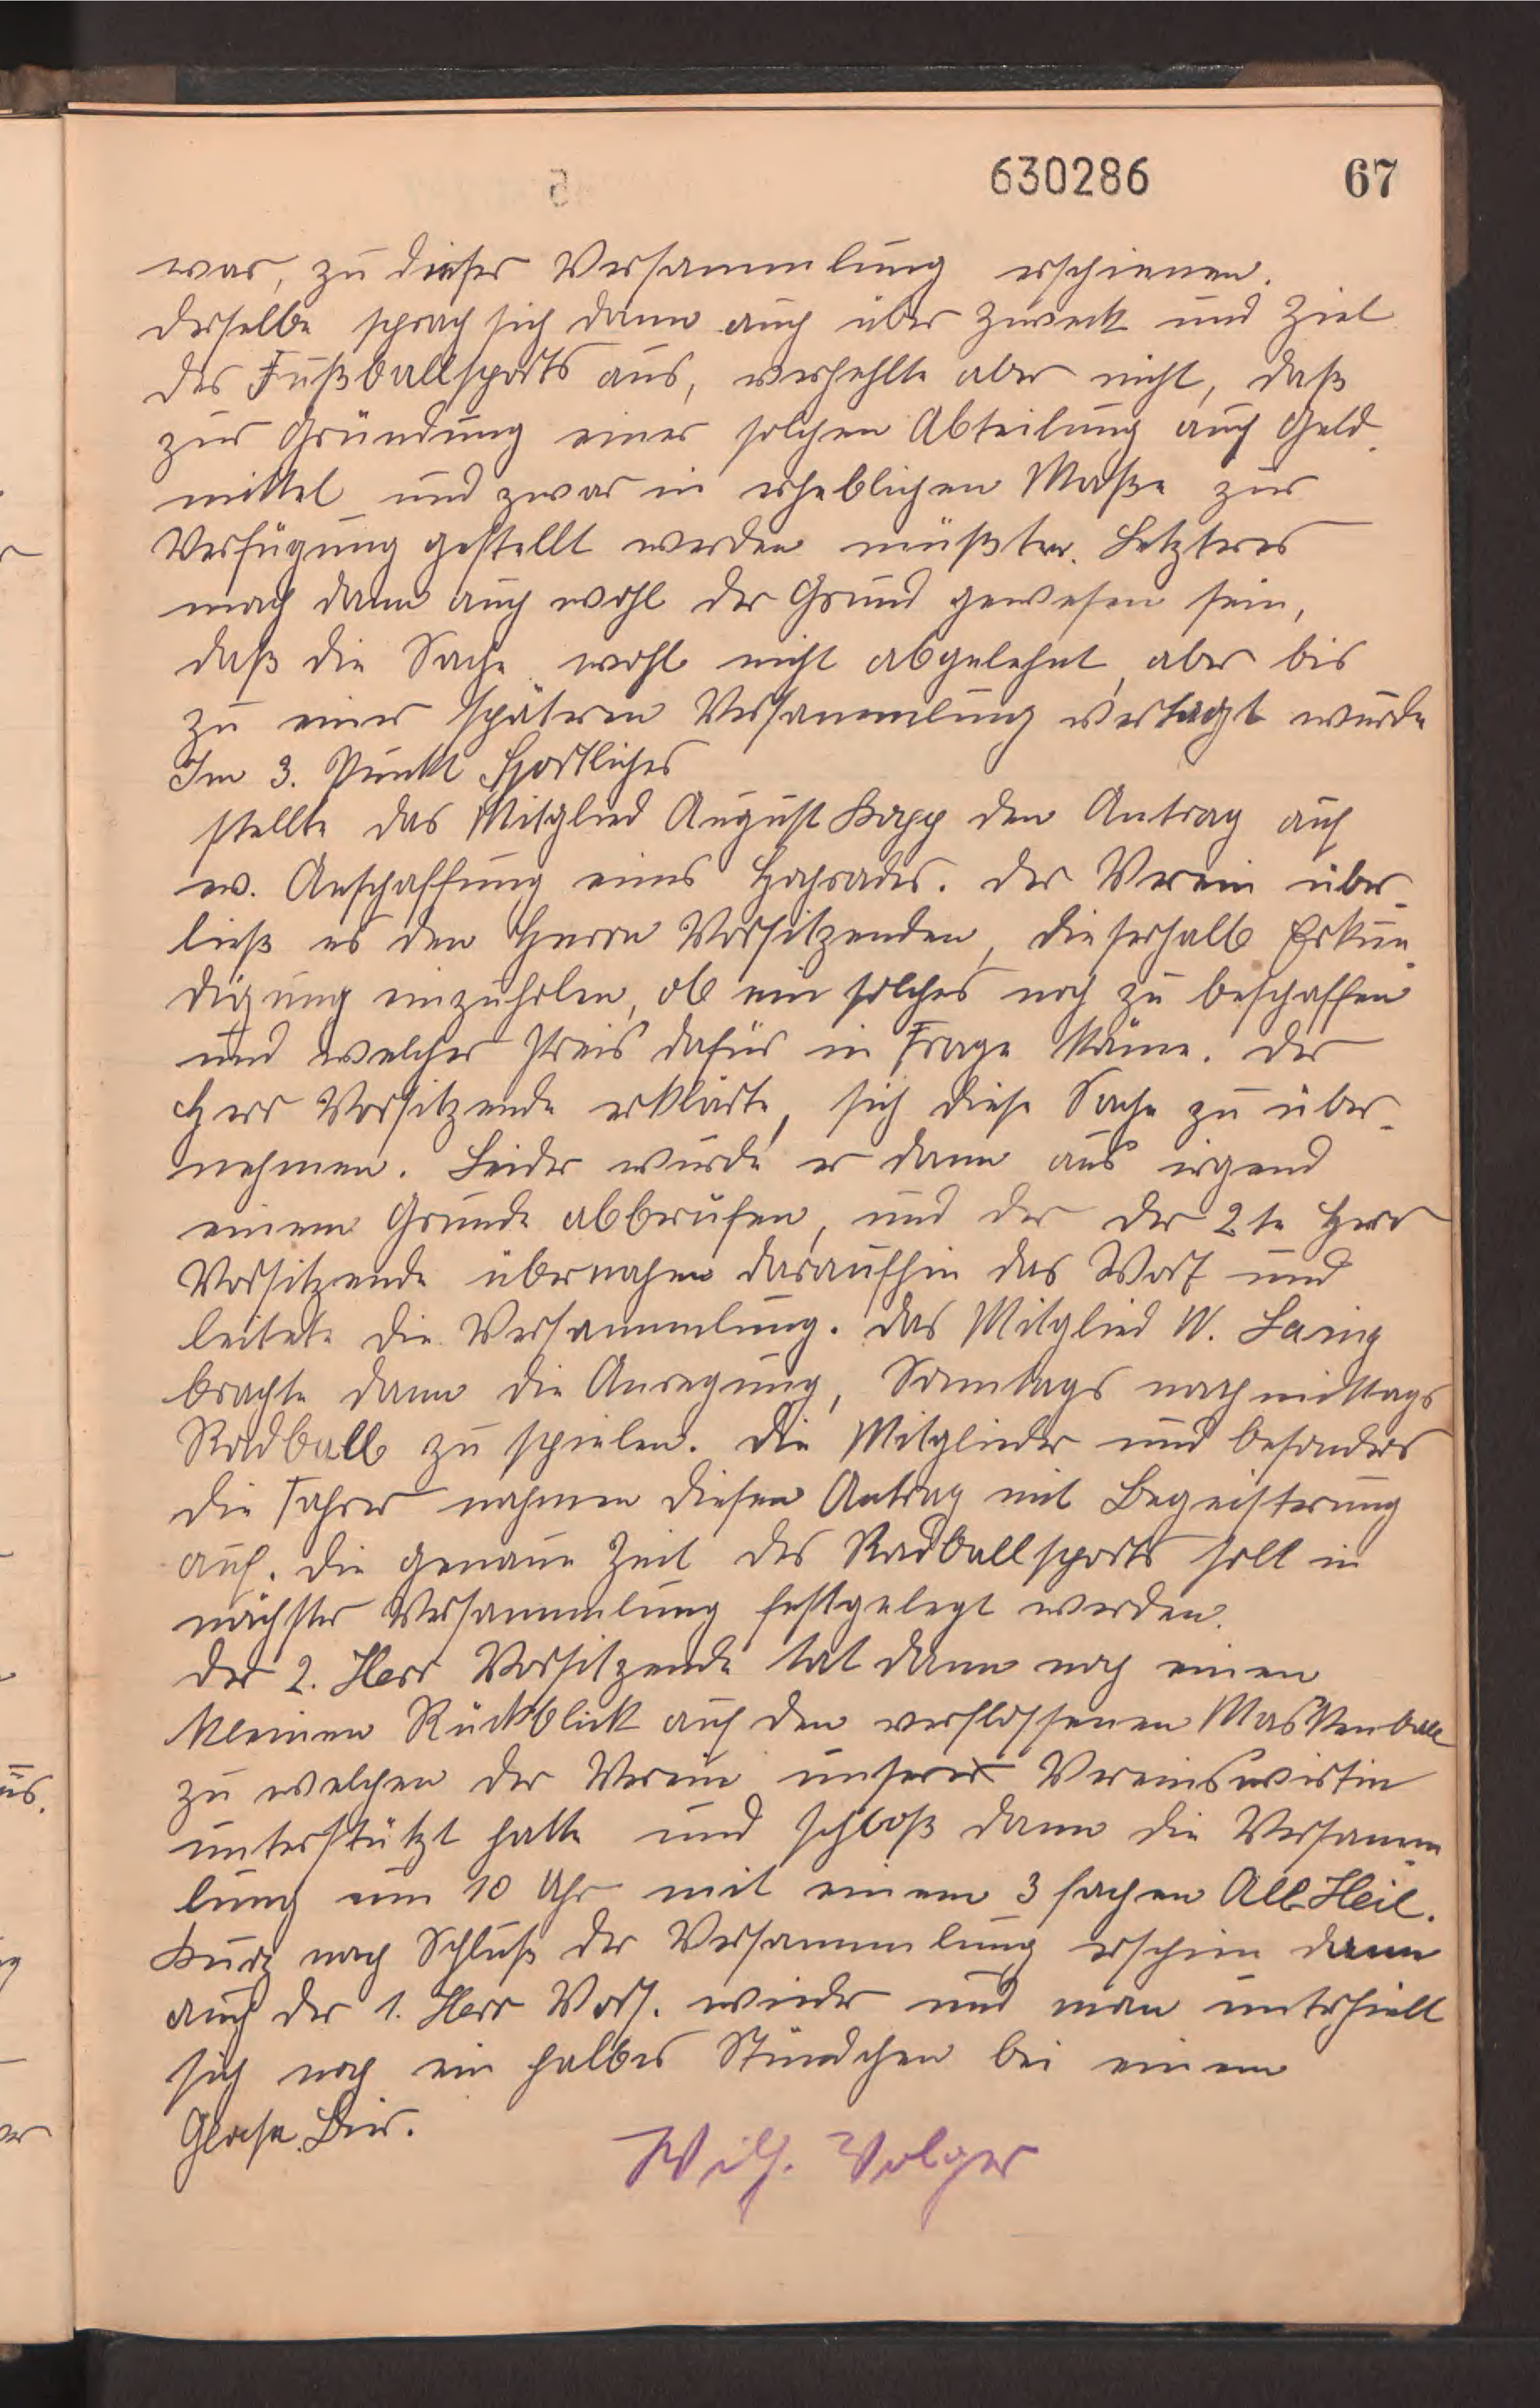 630286 67
war, zu dieser Versammlung erschienen.
Derselbe sprach sich dann auch über Zweck und Ziel
des Fußballsports aus, verhehlte aber nicht, daß
zur Gründung einer solchen Abteilung auch Geld-
mittel und zwar in erheblichen Maße zur
Verfügung gestellt werden müßten. Letzteres
mag dann auch wohl der Grund gewesen sein,
daß die Sache wohl nicht abgelehnt, aber bis
zu einer späteren Versammlung vertagt wurde
Im 3. Punkt Sportliches
stellte das Mitglied August Kopp den Antrag auf
ev. Anschaffung eines Hochrades. Der Verein über-
ließ es den Herrn Vorsitzenden, dieserhalb Erkun-
digung einzuholen, ob ein solches noch zu beschaffen
und welcher Preis dafür in Frage käme. Der
Herr Vorsitzende erklärte, sich diese Sache zu über-
nehmen. Leider wurde er dann aus irgend
einem Grunde abberufen, und der der 2te Herr
Vorsitzende übernahm daraufhin das Wort und
leitete die Versammlung. Das Mitglied W. Laing
brachte dann die Anregung, Sonntags nachmittags
Radball zu spielen. Die Mitglieder und besonders
die Fahrer nahmen diesen Antrag mit Begeisterung
auf. Die genaue Zeit des Radballsports soll in
nächster Versammlung festgelegt werden.
Der 2. Herr Vorsitzende tat dann noch einen
kleinen Rückblick auf den verflossenen Maskenball
zu welchen der Verein unsere Vereinswirtin
unterstützt hatte und schloß dann die Versamm-
lung um 10 Uhr mit einem 3 fachen All Heil.
Kurz nach Schluß der Versammlung erschien dann
auch der 1. Herr Vors. wieder und man unterhielt
sich noch ein halbes Stündchen bei einem
Glase Bier.
Wilh. Volger